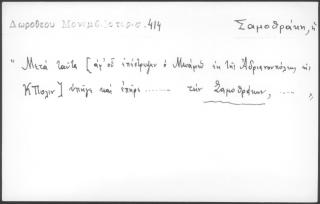 Δωροθέου Μονεμβ. Ιστορ. σ. 414
Σαμοθράκη, ἡ
" Μετά ταῦτα [ἀφ' οὗ ἐπέστρεψεν ὁ Μεχμέτ ἐκ τῆς Ἀδριανουπόλεως εἰς
ΚΠολιν] ἐπῆγε καί ἐπῆρε ........ τήν Σαμοθράκην, .... "